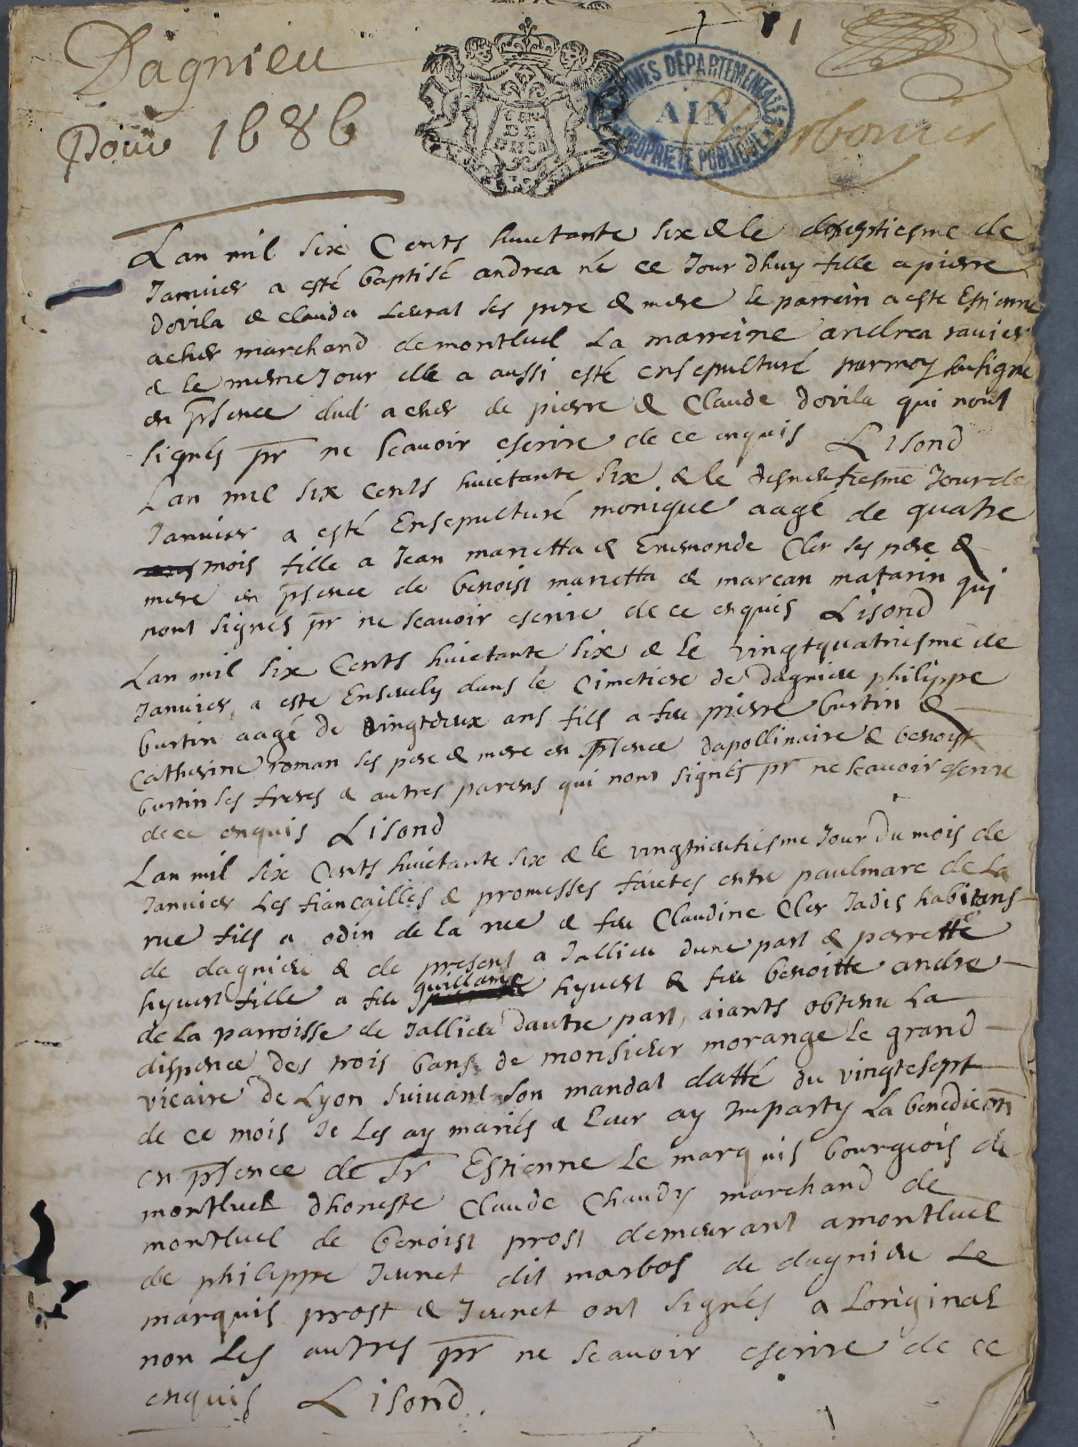 Dagnieu
Pour 1686
ARCHIVES DÉPARTEMENTALES
AIN
PROPRIÉTÉ PUBLIQUE
Lan mil six Cents huictante six & le de
Januier a esté baptisé andrea né ce Jour dhuy fille a pierre
dovila & clauda ses pere & mere le parrein a este Estienne
acher marchand de montluel La marreine andrea rauier
& le mesme Jour elle a aussi esté ensepulturé par moy soubsigné
en psence dud acher de pierre & Claude dovila qui nont
signés pr ne scauoir escrire de ce enquis Lisond
Lan mil six cents huictante six & le Jour de
Januier a esté Ensepulturé monique aagé de quatre
mois fille a Jean marietta & Enemonde Cler ses pere &
mere en psence de benoist marietta & marcan matarin qui
nont signés pr ne scauoir escrire de ce enquis Lisond
Lan mil six Cents huictante six & le vingtquatriesme de
Januier, a este Enseuely dans le Cimetiere de dagnieu philippe
burtin aagé de vingtdeux ans fils a feu pierre burtin &
Catherine roman ses pere & mere en psence dapollinaire & benoist
burtin ses freres & autres parens qui nont signés pr ne scauoir escrire
de ce enquis Lisond
Lan mil six Cents huictante six & le vingthuictiesme Jour du mois de
Januier Les fiancailles & promesses faictes entre paulmarc de La
rue fils a odin de la rue & feu Claudine Cler Jadis habitans
de dagnieu & de present a Jallieu dune part & perrette
hyuert fille a feu guillaume hyuert & feu benoitte andre
de La parroisse de Jallieu dautre part, aiants obtenu La
dispence des trois bans de monsieur morange Le grand
vicaire de Lyon suiuant son mandat datté du vingtesept
de ce mois Je Les ay mariés & Leur ay Imparty La benediction
en psence de Sr Estienne Le marquis bourgeois de
montluel dhoneste Claude Chaudy marchand de
montluel de benoist prost demeurant a montluel
de philippe Jeunet dit marbos de dagnieu Le
marquis prost & Jeunet ont signés a Loriginal
non Les autres pr ne scauoir escrire de ce
enquis Lisond.